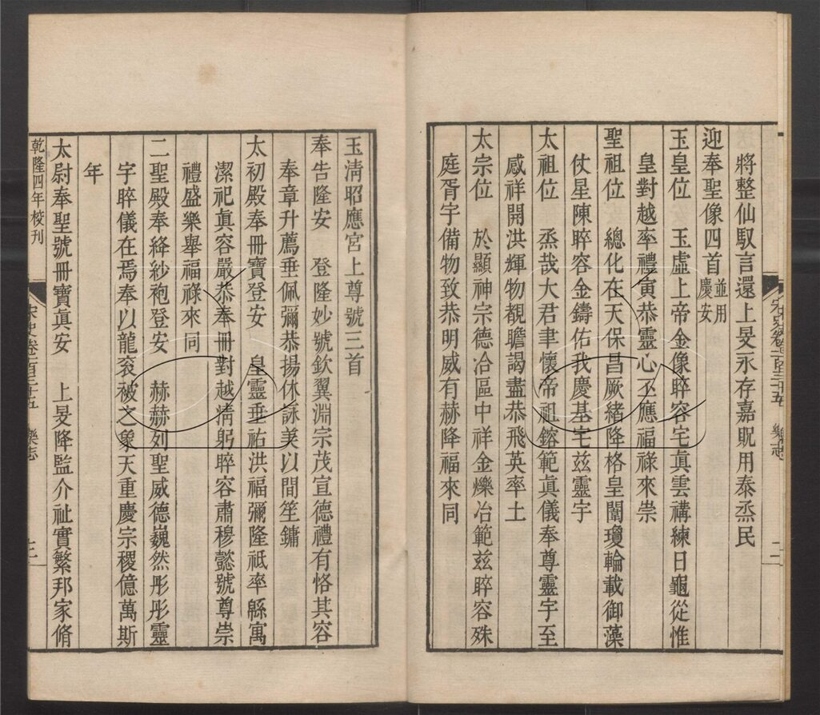 將整仙馭言還上旻永存嘉貺用泰烝民
迎奉聖像四首 並用慶安
玉皇位 玉虛上帝金像睟容宅真雲構練日龜從惟
皇對越率禮寅恭靈心丕應福祿來崇
聖祖位 總化在天保昌厥緒降格皇闈瓊輪載御藻
仗星陳睟容金鑄佑我慶基宅兹靈宇
太祖位 烝哉大君聿懷帝祖鎔範真儀奉尊靈宇至
感祥開洪輝物覩瞻謁盡恭飛英率土
太宗位 於顯神宗德洽區中祥金爍冶範兹睟容殊
庭胥宇備物致恭明威有赫降福來同
玉清昭應宮上尊號三首
奉告隆安 登隆妙號欽翼淵宗茂宣德禮有恪其容
奉章升薦垂佩彌恭揚休詠美以間笙鏞
太初殿奉冊寶登安 皇靈垂祐洪福彌隆祗率緜寓
潔祀真容嚴恭奉冊對越清躬睟容肅穆懿號尊崇
禮盛樂舉福祿來同
二聖殿奉絳紗袍登安 赫赫列聖威德巍然彤彤靈
宇睟儀在焉奉以龍衮被之象天重慶宗稷億萬斯
年
太尉奉聖號冊寶真安 上旻降監介祉實繁邦家脩
乾隆四年校刊
宋史卷一百三十五 樂志
二
宋史卷一百三十五 樂志
三